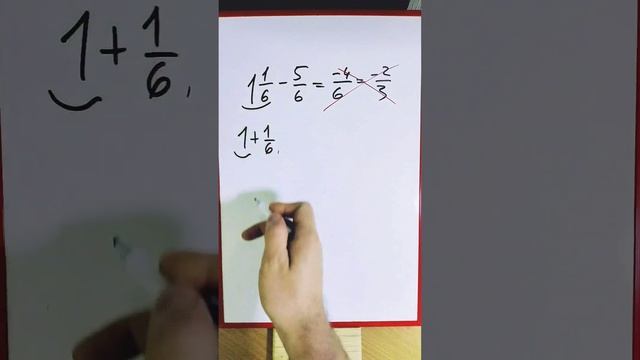 1 1/6 - 5/6 = -4/6 = -2/3
1 + 1/6